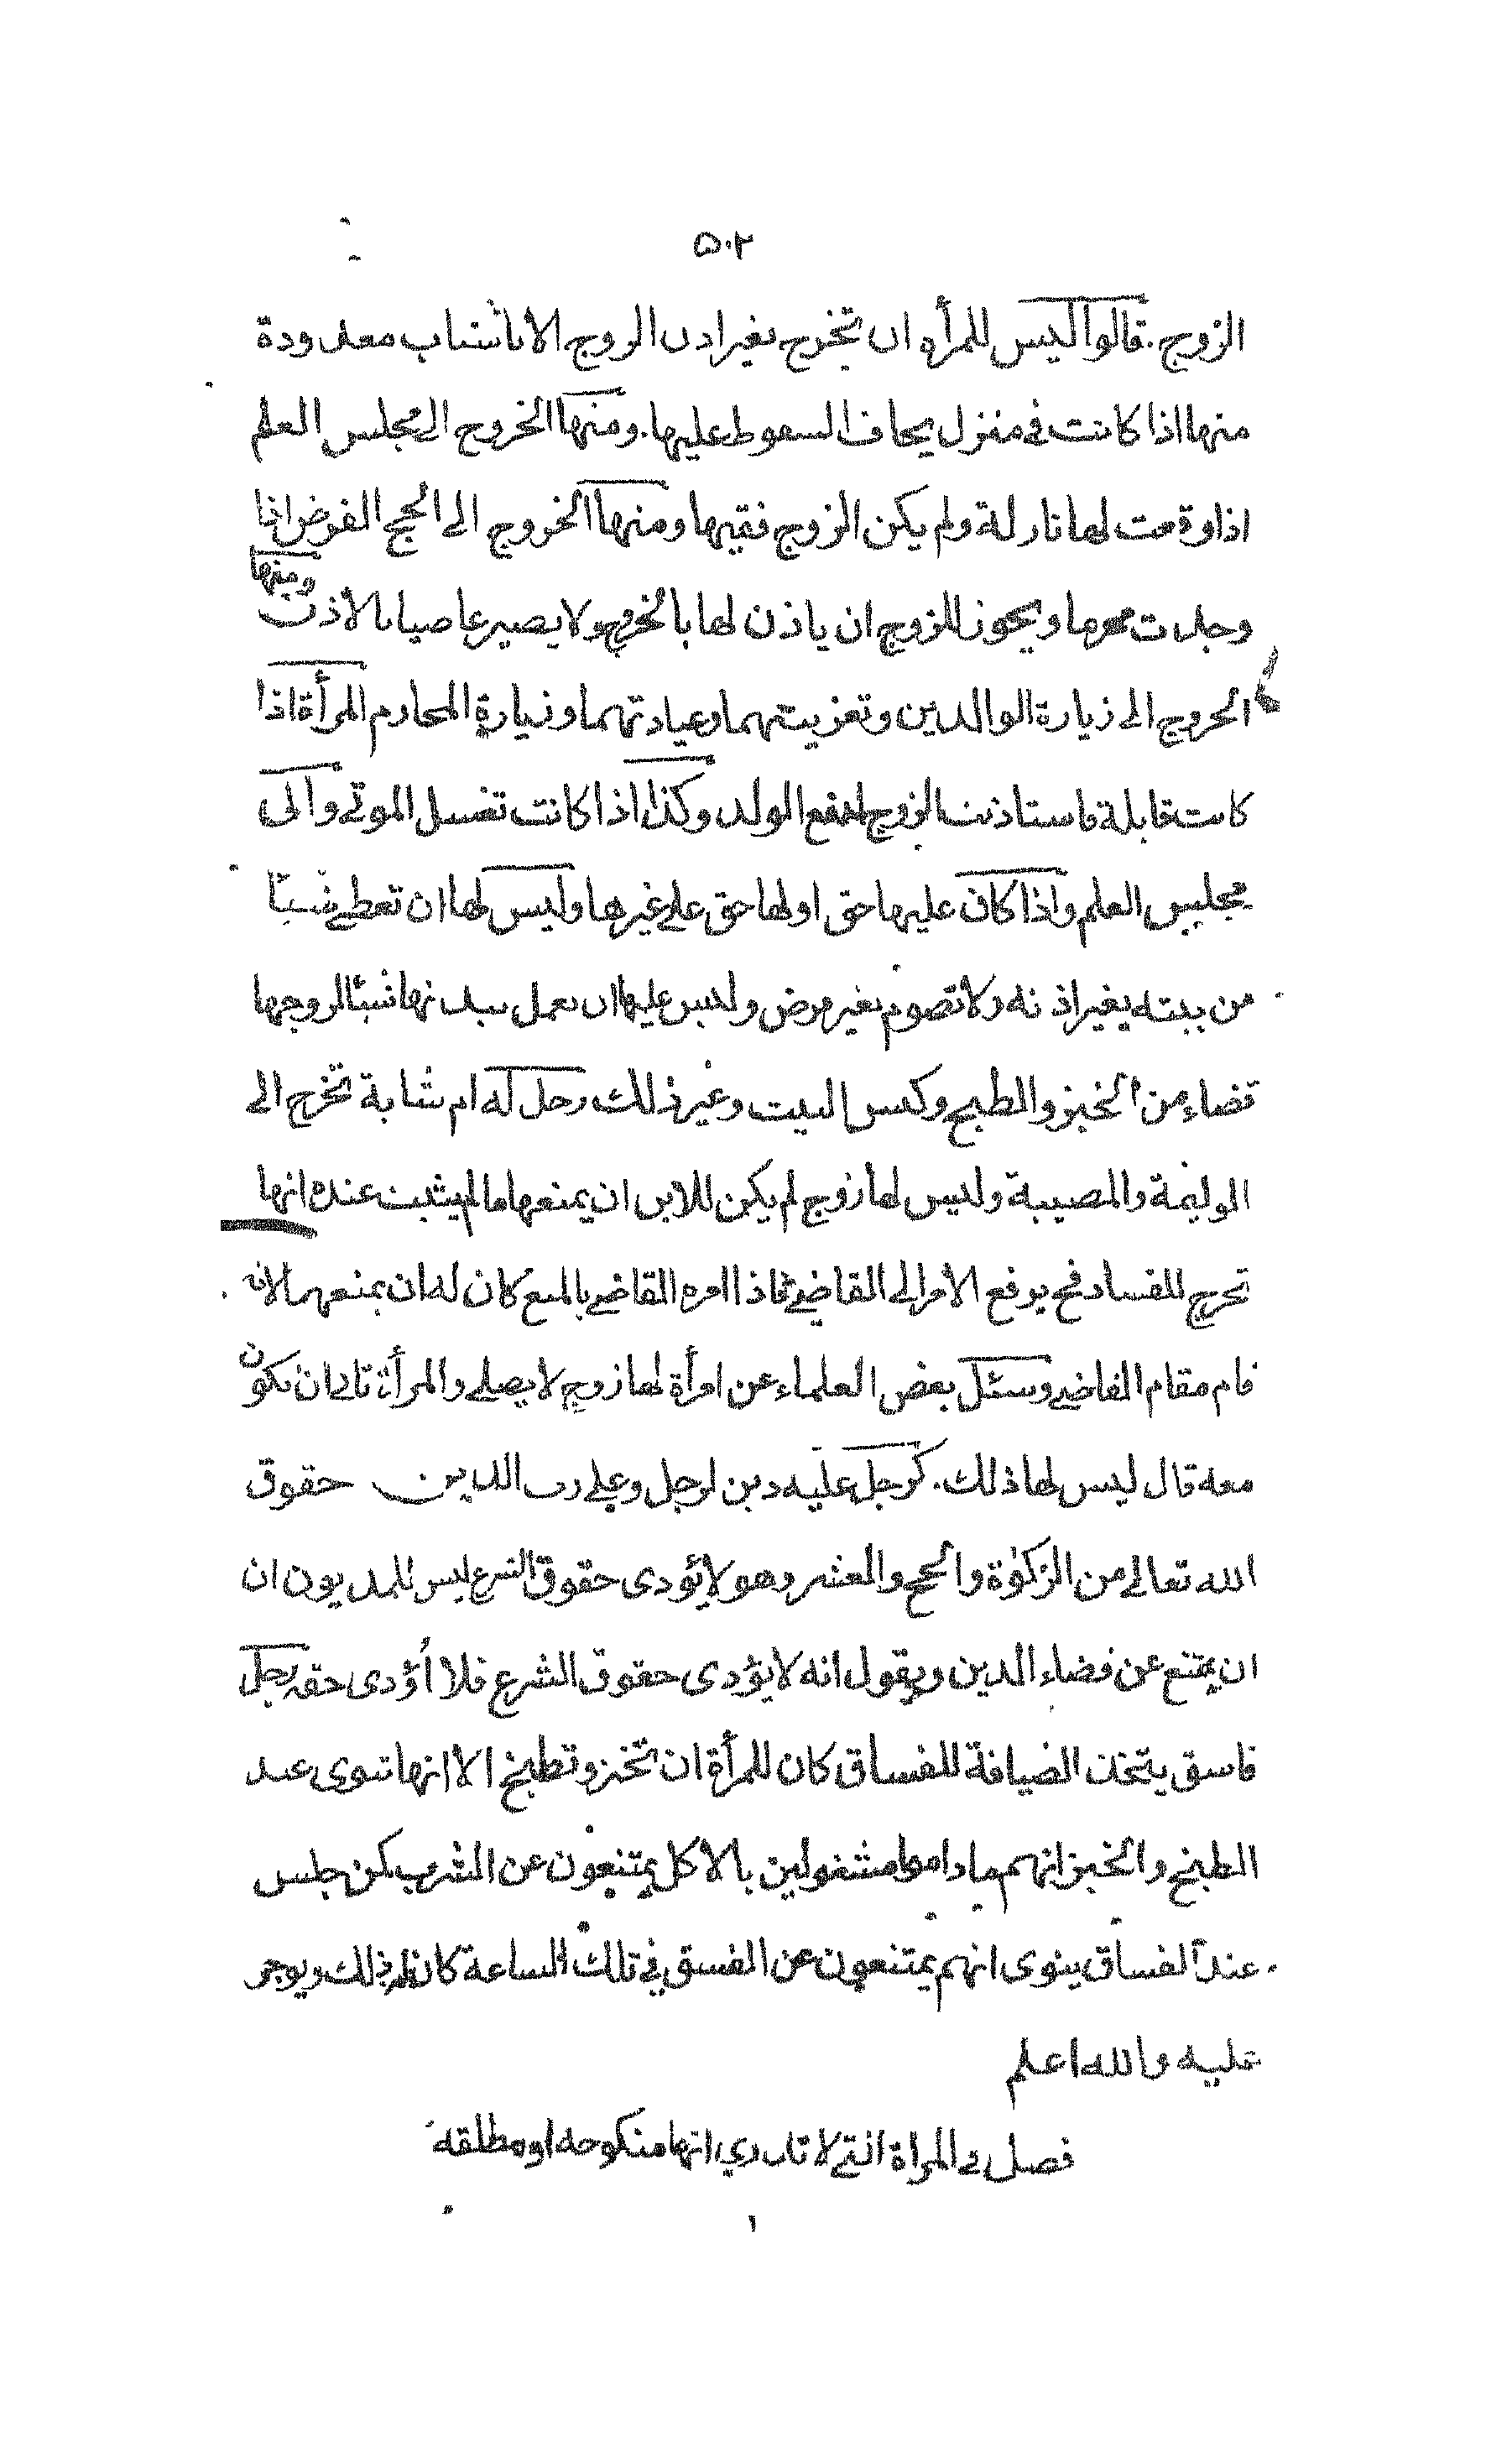 ۵۰۲
الزوج . قالوا ليس للمرأه ان تخرج بغير اذن الزوج الا باسباب معدودة
منها اذا كانت في منزل يخاف السقوط عليها . ومنها الخروج الى مجلس العلم
اذا وقعت لها نازلة ولم يكن الزوج فقيها ومنها الخروج الى الحج الفرض اذا
وجدت محرما ويجوز للزوج ان ياذن لها بالخروج ولا يصير عاصيا بالاذن ومنها
الخروج الى زيارة الوالدين وتعزيتهما وعيادتهما وزيارة المحارم المرأة اذا
كانت قابلة فاستاذنت الزوج لدفع الولد وكذا اذا كانت تغسل الموتى والى
مجلس العلم واذا كان عليها حق او لها حق على غيرها وليس لها ان تعطي شيئا
من بيته بغير اذنه ولا تصوم بغير مرض وليس عليها ان تعمل بيدنها شيئا لزوجها
قضاء من الخبز والطبخ وكنس البيت وغير ذلك رجل له ام شابة تخرج الى
الوليمة والمصيبة وليس لها زوج لم يكن للابن ان يمنعها ما لم يثبت عنده انها
تخرج للفساد فح يرفع الأمر الى القاضي فاذا امره القاضي بالمنع كان له ان يمنعها لانه
قام مقام القاضي وسئل بعض العلماء عن امرأة لها زوج لا يصلي والمرأة تابى ان تكون
معه قال ليس لها ذلك . كرجل عليه دين لرجل وعلى رب الدين حقوق
الله تعالى من الزكوٰة والحج والعشر وهو لا يؤدى حقوق الشرع ليس للمديون ان
ان يمتنع عن قضاء الدين ويقول انه لا يؤدى حقوق الشرع فلا أؤدى حقه رجل
فاسق يتخذ الضيافة للفساق كان للمرأة ان تخبز وتطبخ الا انها تنوى عند
الطبخ والخبز انهم ما داموا مشغولين بالاكل يمتنعون عن الشرب كمن جلس
عند الفساق ينوى انهم يمتنعون عن الفسق في تلك الساعة كان له ذلك ويوجر
عليه والله اعلم
فصل في المراة التي لا تدري انها منكوحه او مطلقه
١